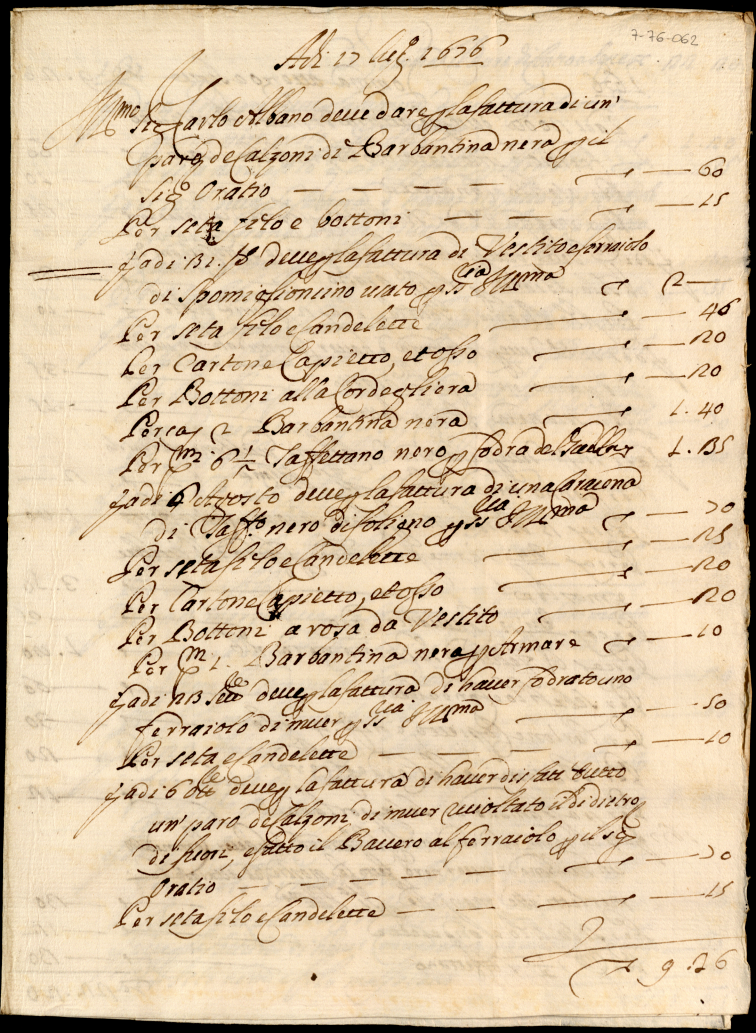 7-76-062
Adi 17 lug.º 1676
Ill.mo Sig. Carlo Albano deve dare p la fattura di un'
paro de Calzoni di Barbantina nera p il
Sig.r Oratio — — — — — 60
Per seta filo e bottoni — — — 15
E adi 31. d.º deve p la fattura di Vestito e ferraiolo
di spomiglioncino usato p SS.ria Ill.ma 2 —
Per seta filo e Candelette — 46
Per Cartone Capietto, et osso — 20
Per Bottoni alla Cordegliera — 20
Per ca/ 2 Barbantina nera 1. 40
Per m/ 6 1/2 Taffettano nero p fodra del 1. 35
E adi 6 Agosto deve p la fattura di una
di Taff.º nero di foligno p SS.ria Ill.ma — 70
Per seta filo e Candelette — 25
Per Cartone Capietto, et osso — 20
Per Bottoni a rosa da Vestito — 20
Per m/ 1. Barbantina nera p Armare — 10
E adi 23 7bre deve p la fattura di haver fodrato uno
ferraiolo di muer p SS.ria Ill.ma — 50
Per seta e Candelette — — — — 10
E adi 6 8bre deve p la fattura di haver disfatt tutto
un' paro de Calzoni di muer rivoltato il di dietro
di fuori, e fatto il Bavero al ferraiolo p il Sig.
Oratio — — — — — 70
Per seta filo e Candelette — — — 15
9. 26